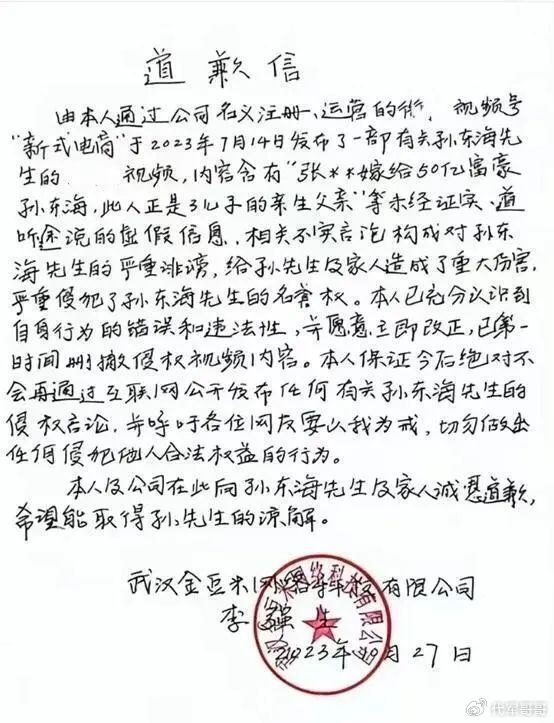 道歉信
由本人通过公司名义注册、运营的 视频号
"新式电商"于2023年7月14日发布了一部有关孙东海先
生的 视频,内容含有"张**嫁给50亿富豪
孙东海,此人正是3儿子的亲生父亲"等未经证实、道
听途说的虚假信息,相关不实言论构成对孙东
海先生的严重诽谤,给孙先生及家人造成了重大伤害,
严重侵犯了孙东海先生的名誉权。本人已充分认识到
自身行为的错误和违法性,并愿意立即改正,已第一
时间删撤侵权视频内容。本人保证今后绝对不
会再通过互联网公开发布任何有关孙东海先生的
侵权言论,并呼吁各位网友要以我为戒,切勿做出
任何侵犯他人合法权益的行为。
本人及公司在此向孙东海先生及家人诚恳道歉,
希望能取得孙先生的谅解。
武汉金豆米网络科技有限公司
李强生
2023年10月27日
代军哥哥